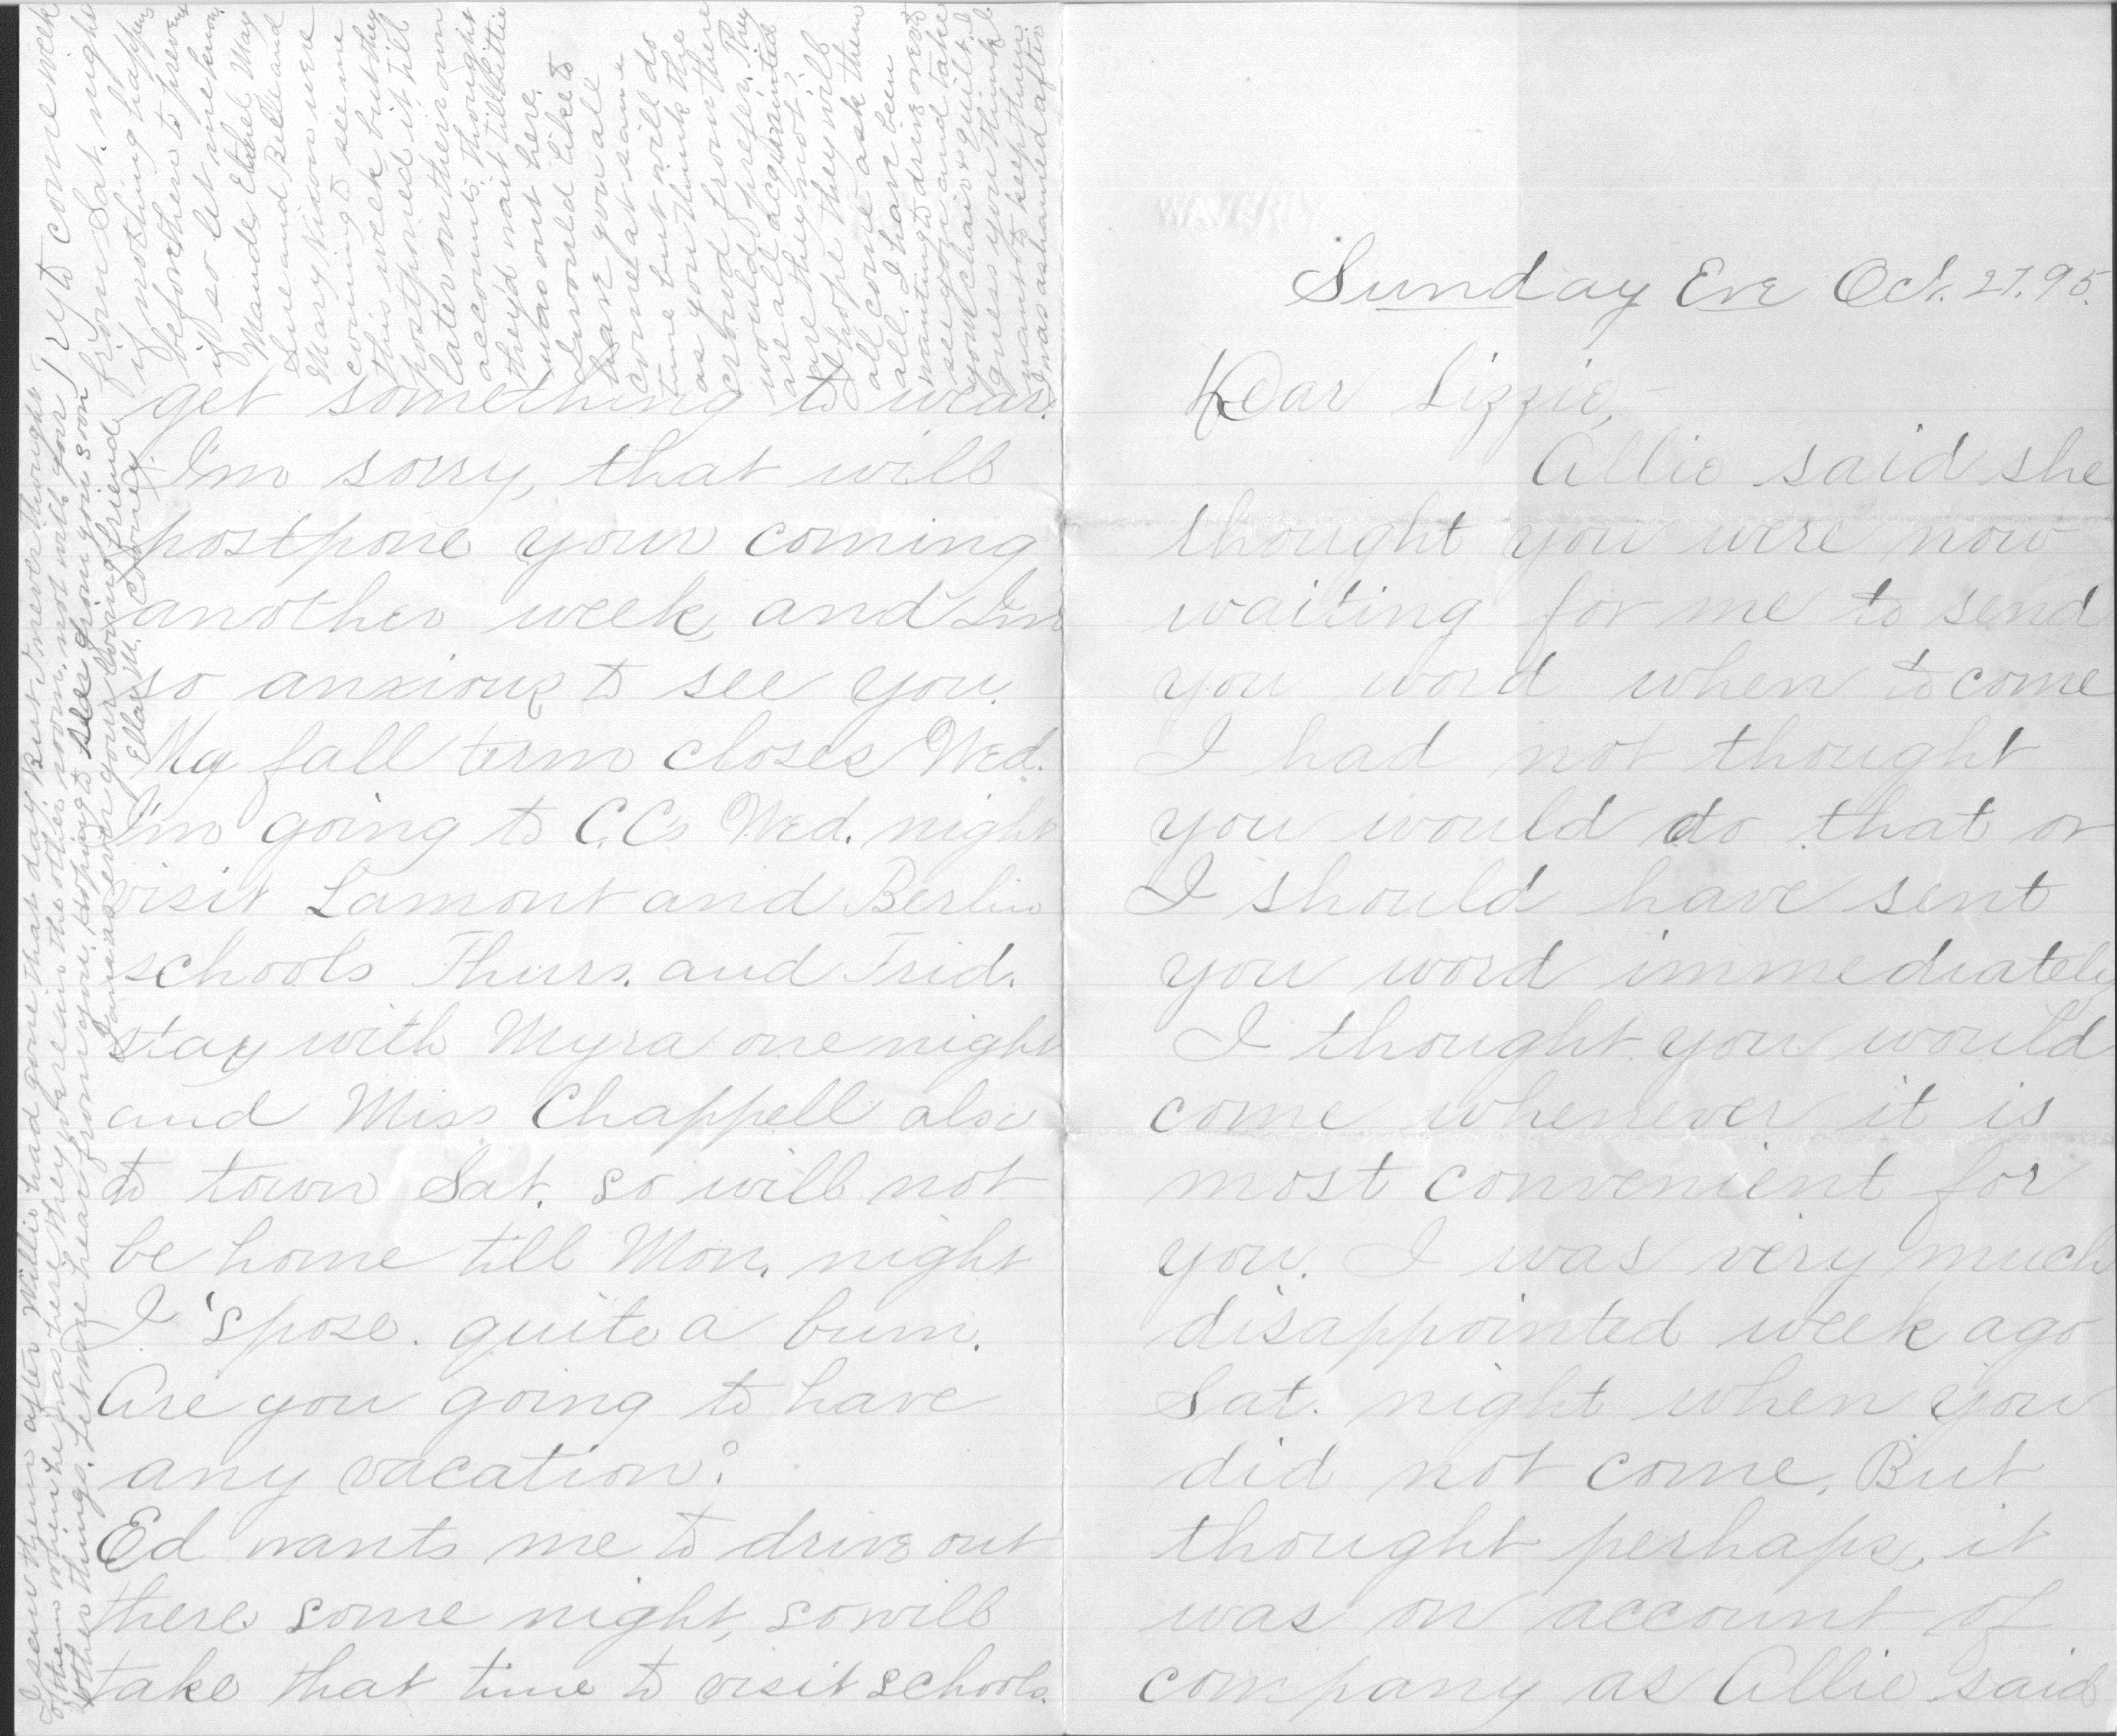 Sunday Eve Oct. 27. 95.
Dear Lizzie,-
Allie said she
thought you were now
waiting for me to send
you word when to come
I had not thought
you would do that or
I should have sent
you word immediately
I thought you would
come whenever it is
most convenient for
you. I was very much
disappointed week ago
Sat. night when you
did not come. But
thought perhaps, it
was on account of
company as Allie said
get something to wear.
I'm sorry, that will
postpone your coming
another week, and I'm
so anxious to see you.
My fall term closes Wed.
I'm going to C.C's Wed. night
visit Lamont and Berlin
schools Thurs. and Frid.
stay with Myra one night
and Miss Chappell also
to town Sat. so will not
be home till Mon. night
I 'spose. quite a bum.
Are you going to have
any vacation?
Ed wants me to drive out
there some night, so will
take that time to visit schools.
Try to come week
from Sat. night
if nothing happens
before then to prevent
if so let me know.
Maude, Ethel, May
Sue and Belle and
Mary Nixon were
coming to see me
this week but they
postponed it till
later on their own
accounts, thought
they'd wait till Little
was out here.
I would like to
have you all
come at same
time but will do
as you think the
crowd from there
would prefer. They
are all acquainted
are they not?
I hope they will
all come ask them
all. I have been
wanting to drive over to
see you and take
your chair & quilt. I
guess you think I
mean to keep them.
I was ashamed after
I seen them after Willie had gone that day. But I never thought
of them when he was here they are in the other room, not with your
other things. Let me hear from you. Hoping to see you soon
I am as ever your loving friend,
Ella M.